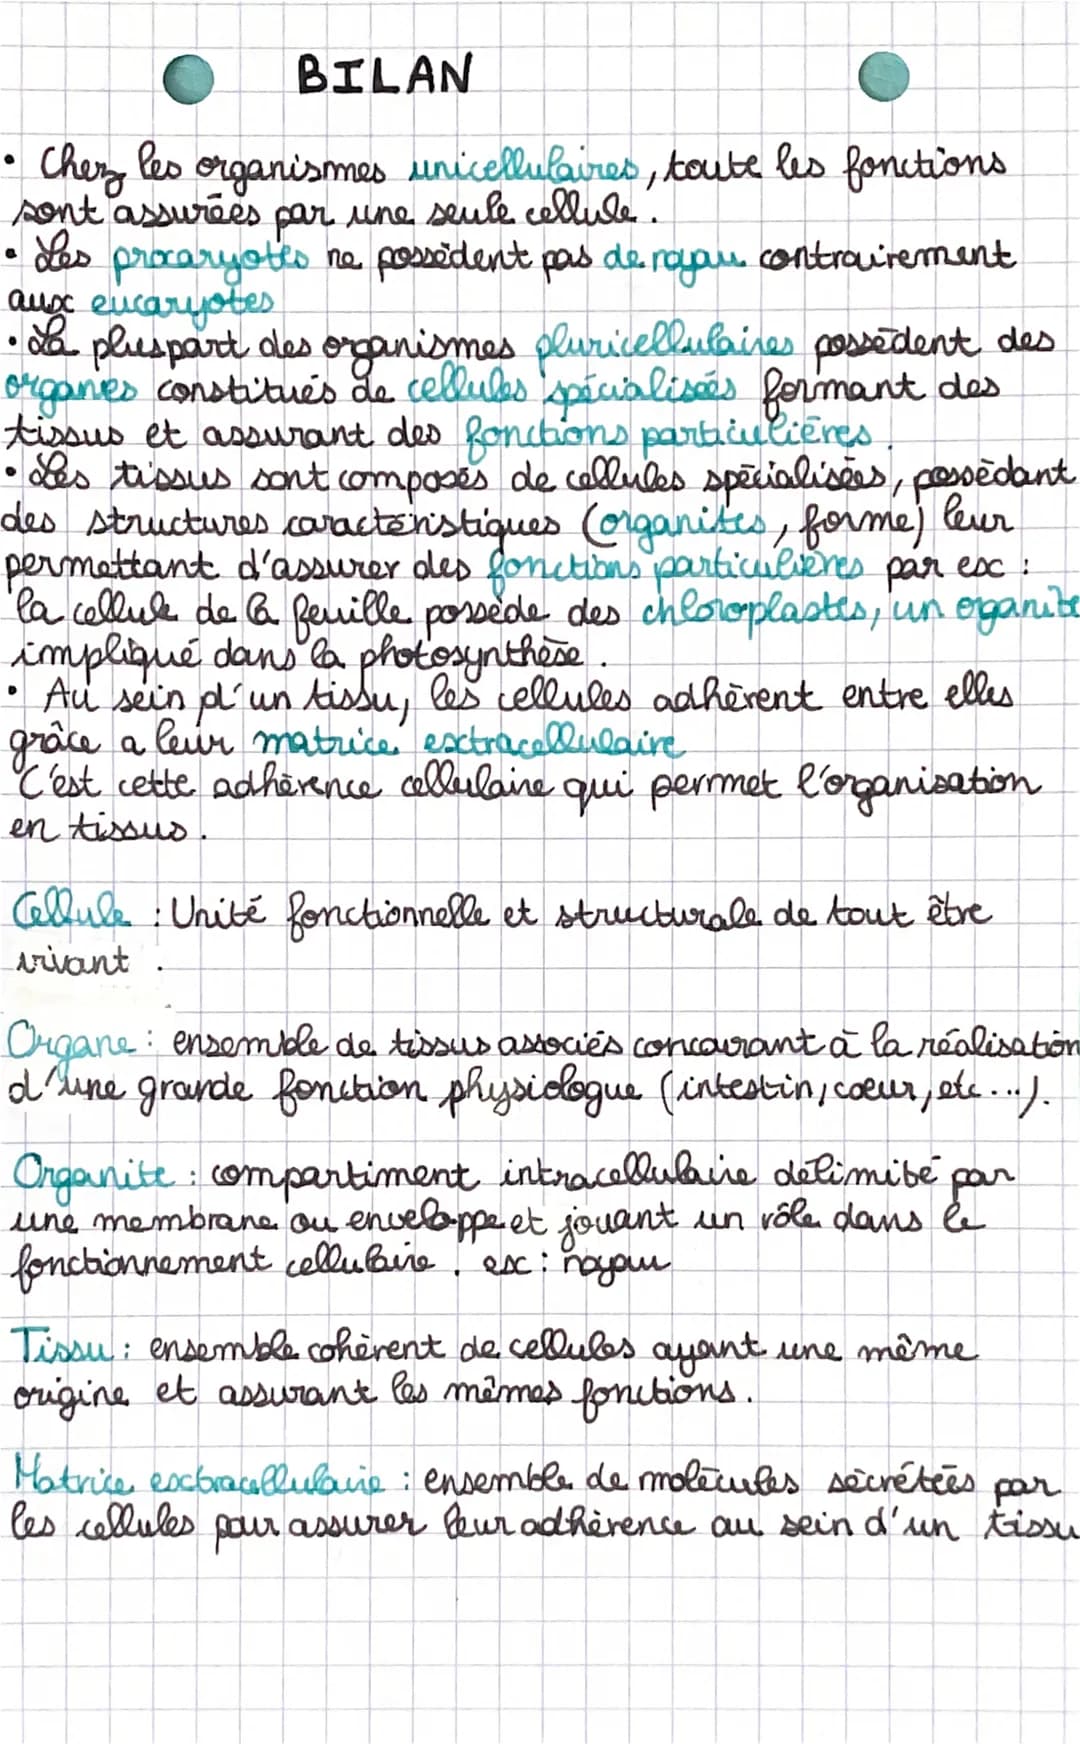 BILAN
• Chez les organismes unicellulaires, toute les fonctions
sont assurées par une seule cellule.
• Les procaryotes ne possèdent pas de noyau contrairement
aux eucaryotes
• La pluspart des organismes pluricellulaires possèdent des
organes constitués de cellules spécialisées formant des
tissus et assurant des fonctions particulières.
• Les tissus sont composés de cellules spécialisées, possèdant
des structures caractéristiques (organites, forme) leur
permettant d'assurer des fonctions particulières par ex :
la cellule de la feuille possède des chloroplastes, un organite
impliqué dans la photosynthèse.
• Au sein d'un tissu, les cellules adhèrent entre elles
grâce a leur matrice extracellulaire
C'est cette adhérence cellulaire qui permet l'organisation
en tissus.
Cellule : Unité fonctionnelle et structurale de tout être
vivant.
Organe : ensemble de tissus associés concourant à la réalisation
d'une grande fonction physiologue (intestin, coeur, etc...).
Organite : compartiment intracellulaire délimité par
une membrane ou enveloppe et jouant un rôle dans le
fonctionnement cellulaire. ex : noyau
Tissu : ensemble cohèrent de cellules ayant une même
origine et assurant les mêmes fonctions.
Matrice extracellulaire : ensemble de molécules sécrétées par
les cellules pour assurer leur adhérence au sein d'un tissu